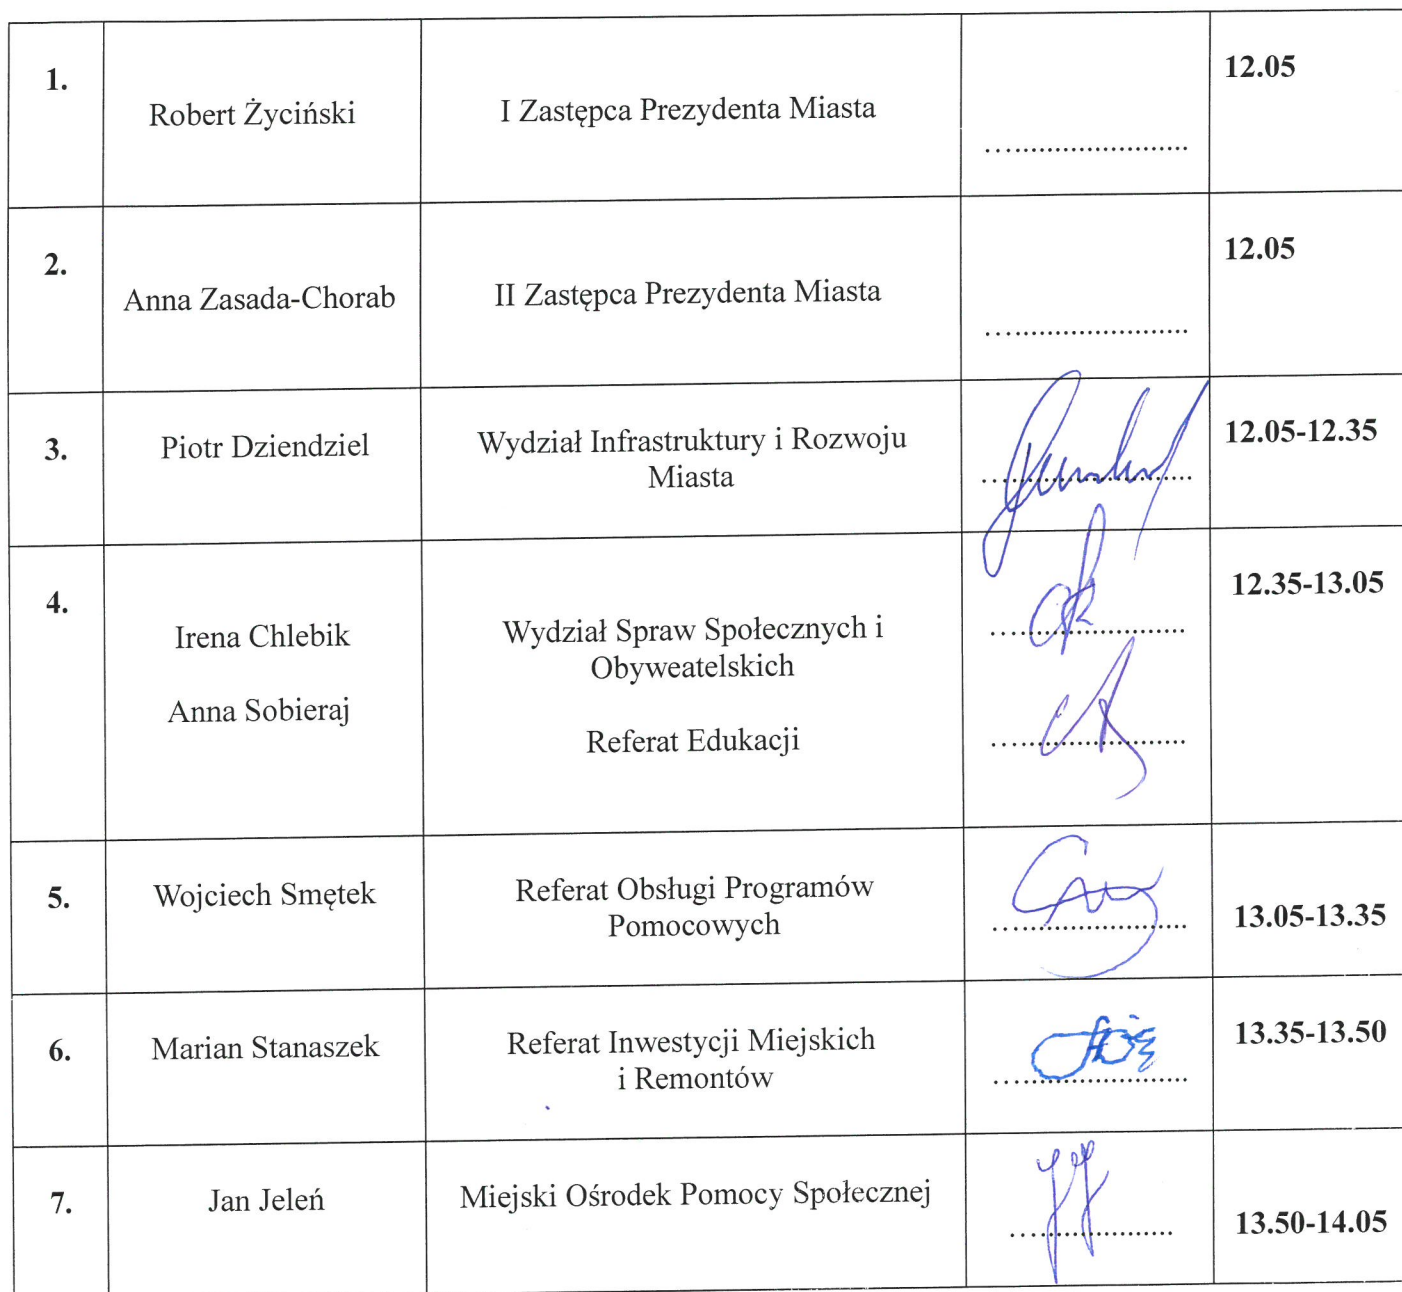 1.
Robert Życiński
I Zastępca Prezydenta Miasta
.......................
12.05
2.
Anna Zasada-Chorab
II Zastępca Prezydenta Miasta
.......................
12.05
3.
Piotr Dziendziel
Wydział Infrastruktury i Rozwoju
Miasta
.......................
12.05-12.35
4.
Irena Chlebik
Anna Sobieraj
Wydział Spraw Społecznych i
Obyweatelskich
Referat Edukacji
.......................
.......................
12.35-13.05
5.
Wojciech Smętek
Referat Obsługi Programów
Pomocowych
.......................
13.05-13.35
6.
Marian Stanaszek
Referat Inwestycji Miejskich
i Remontów
.......................
13.35-13.50
7.
Jan Jeleń
Miejski Ośrodek Pomocy Społecznej
.......................
13.50-14.05